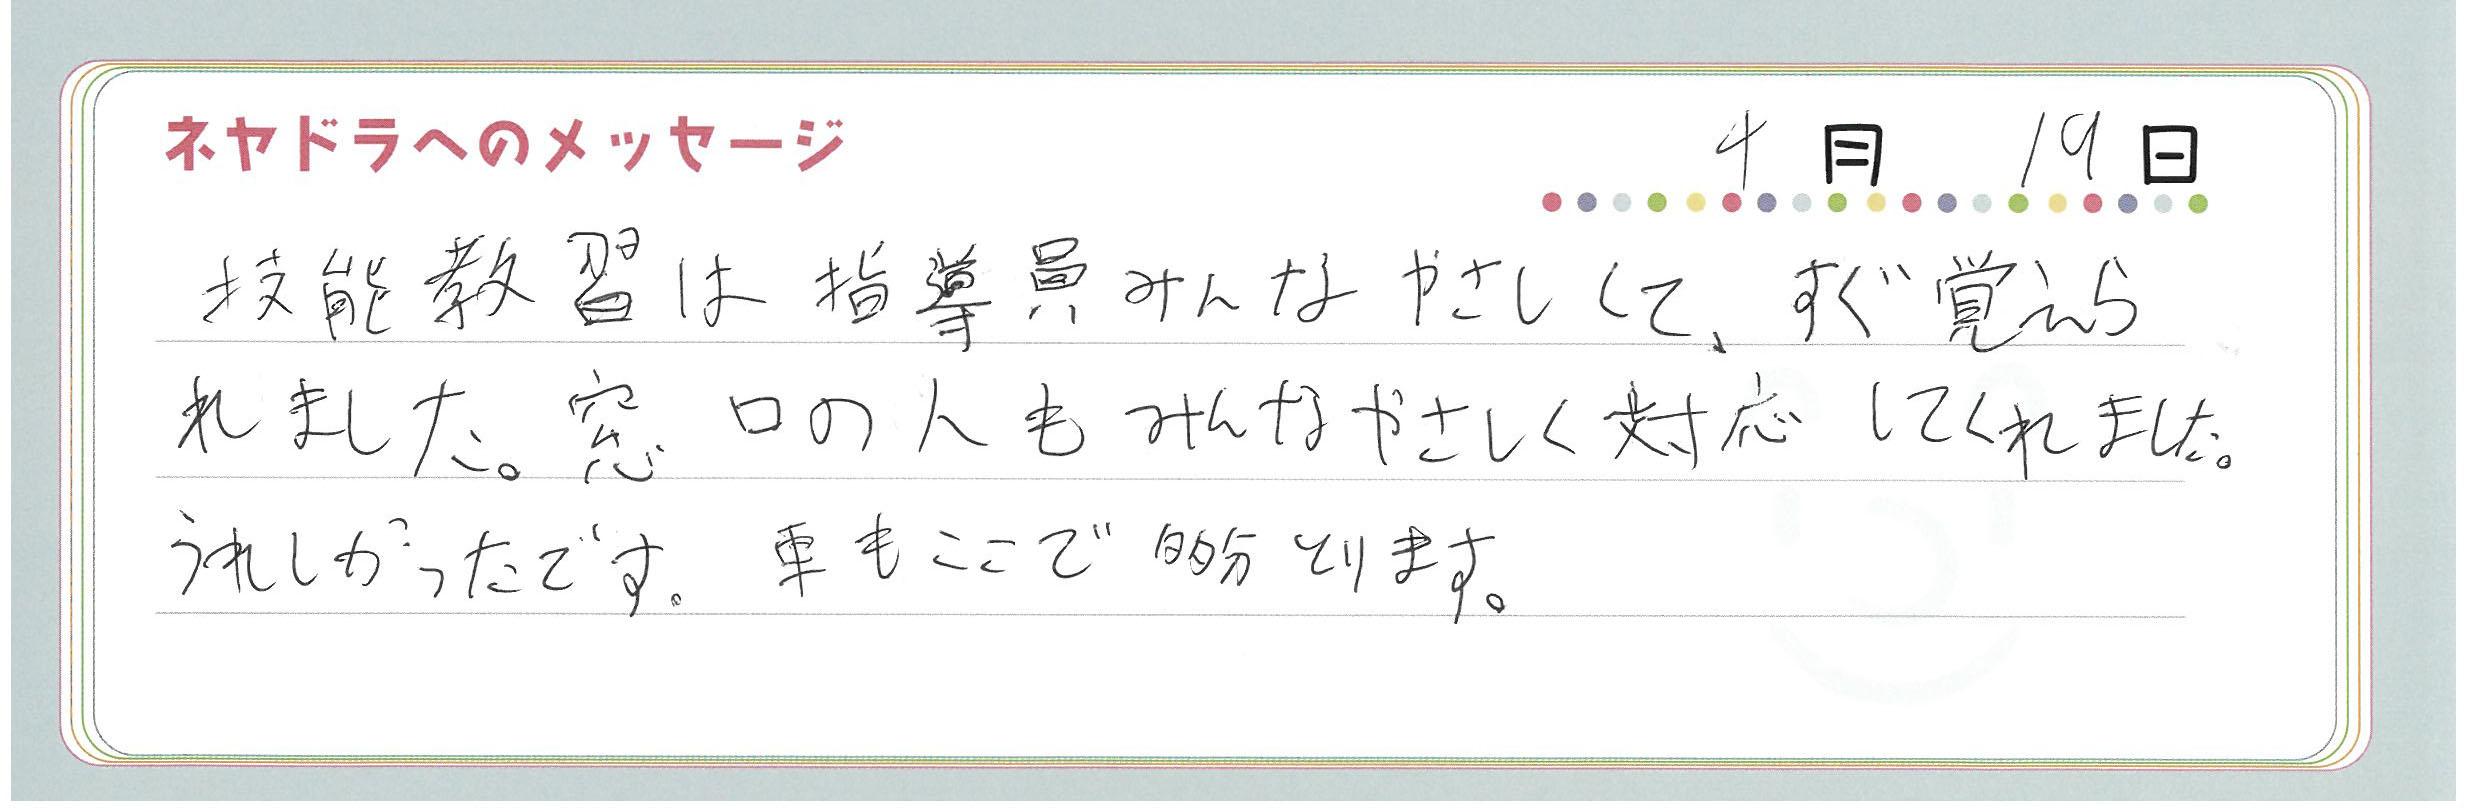 ネヤドラへのメッセージ
4月 19日
技能教習は指導員みんなやさしくて、すぐ覚えら
れました。窓口の人もみんなやさしく対応してくれました。
うれしかったです。車もここで多分とります。